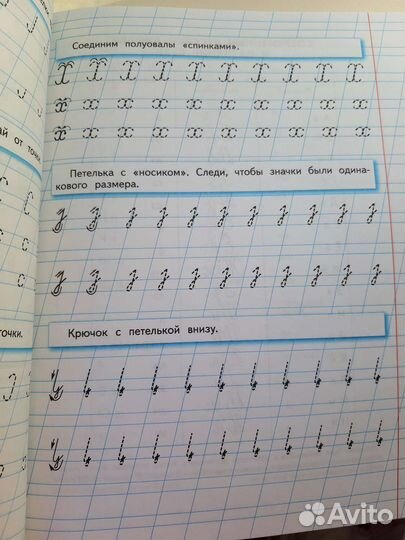 Соединим полуовалы «спинками».
ай от точк
Петелька с «носиком». Следи, чтобы значки были одина-
кового размера.
точки.
Крючок с петелькой внизу.
Avito